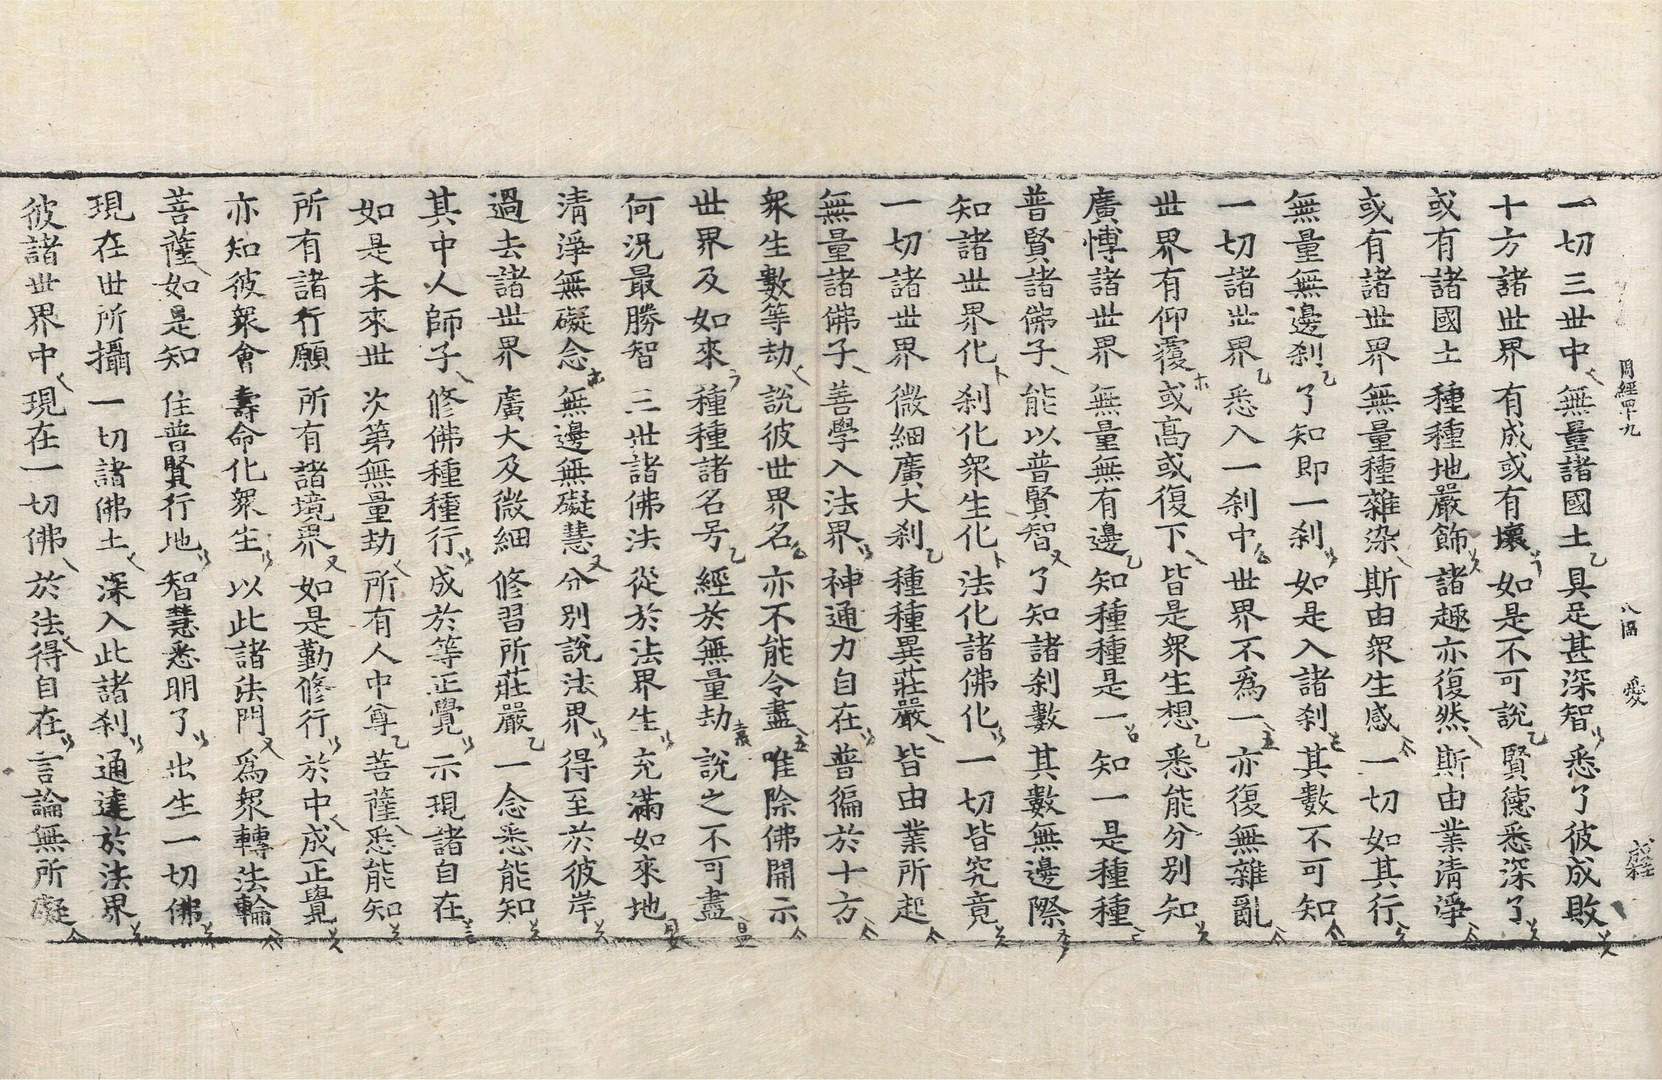 一切三世中 無量諸國土 具足甚深智 悉了彼成敗
十方諸世界 有成或有壞 如是不可說 賢德悉深了
或有諸國土 種種地嚴飾 諸趣亦復然 斯由業清淨
或有諸世界 無量種雜染 斯由衆生感 一切如其行
無量無邊刹 了知即一刹 如是入諸刹 其數不可知
一切諸世界 悉入一刹中 世界不爲一 亦復無雜亂
世界有仰覆 或高或復下 皆是衆生想 悉能分別知
廣博諸世界 無量無有邊 知種種是一 知一是種種
普賢諸佛子 能以普賢智 了知諸刹數 其數無邊際
知諸世界化 刹化衆生化 法化諸佛化 一切皆究竟
一切諸世界 微細廣大刹 種種異莊嚴 皆由業所起
無量諸佛子 善學入法界 神通力自在 普徧於十方
衆生數等劫 說彼世界名 亦不能令盡 唯除佛開示
世界及如來 種種諸名号 經於無量劫 說之不可盡
何況最勝智 三世諸佛法 從於法界生 充滿如來地
清淨無礙念 無邊無礙慧 分別說法界 得至於彼岸
過去諸世界 廣大及微細 修習所莊嚴 一念悉能知
其中人師子 修佛種種行 成於等正覺 示現諸自在
如是未來世 次第無量劫 所有人中尊 菩薩悉能知
所有諸行願 所有諸境界 如是勤修行 於中成正覺
亦知彼衆會 壽命化衆生 以此諸法門 爲衆轉法輪
菩薩如是知 住普賢行地 智慧悉明了 出生一切佛
現在世所攝 一切諸佛土 深入此諸刹 通達於法界
彼諸世界中 現在一切佛 於法得自在 言論無所礙